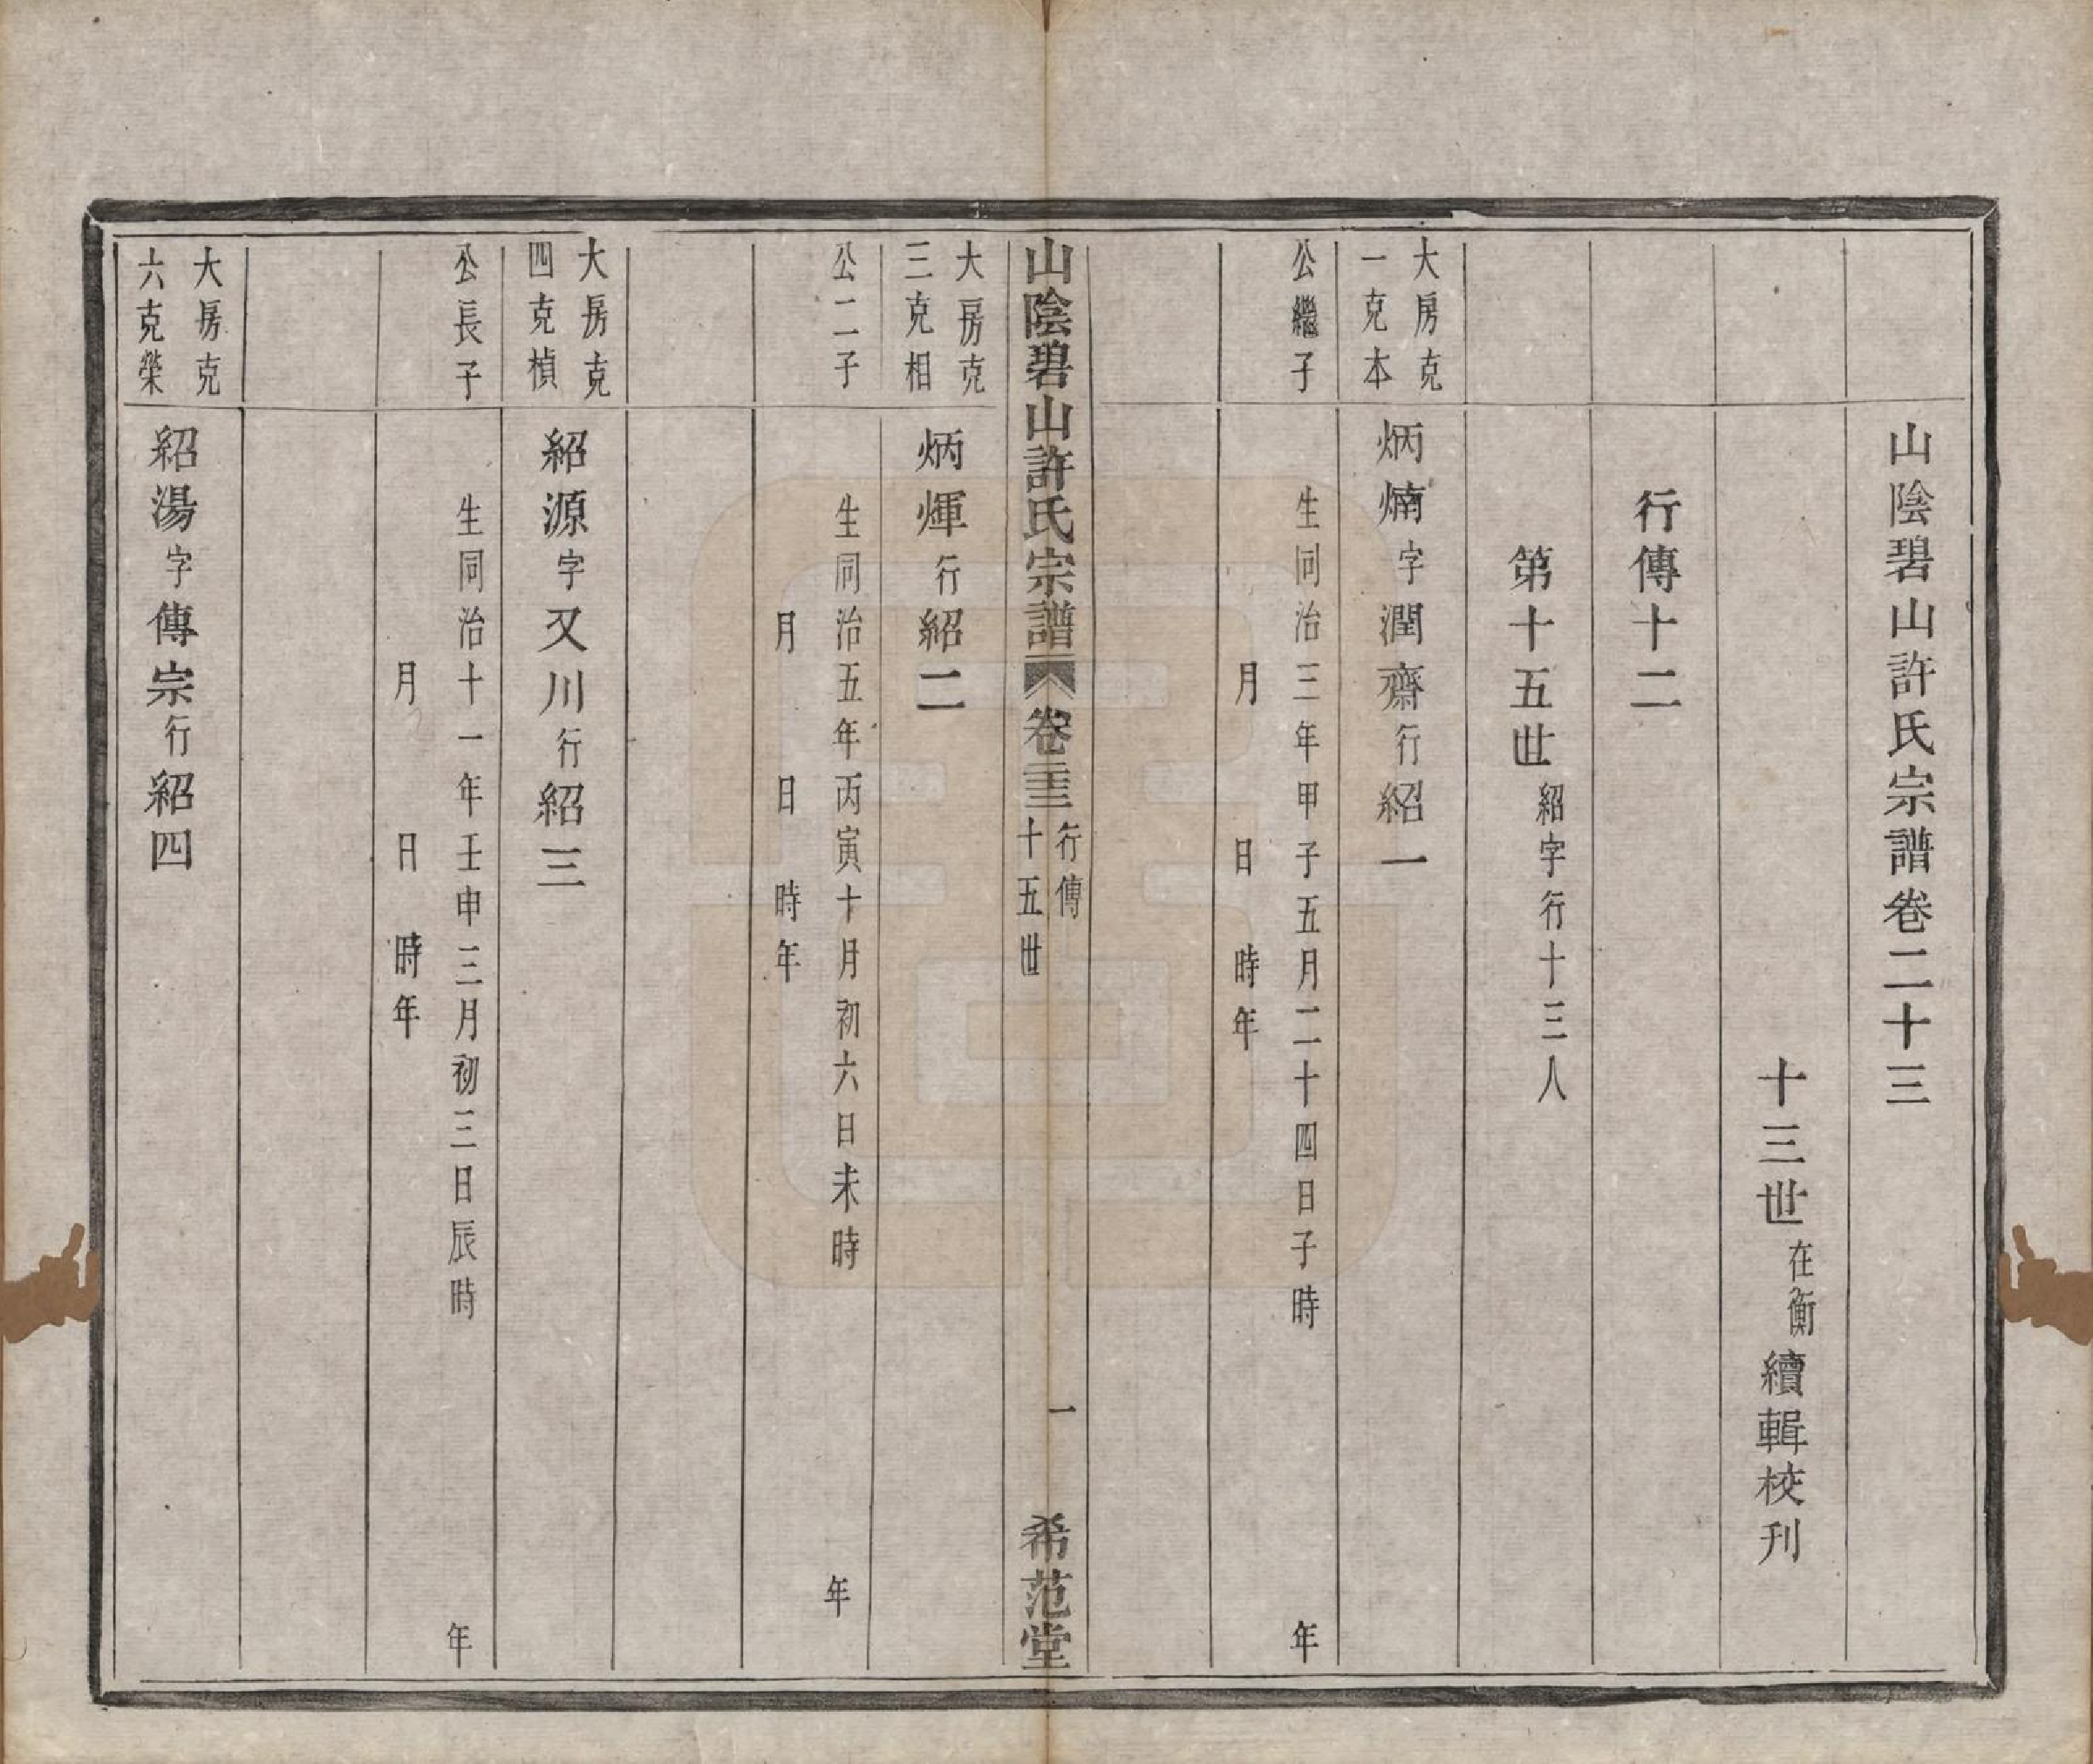 山陰碧山許氏宗譜卷二十三
十三世在衡續輯校刋
行傳十二
第十五世紹字行十三人
大房克
一克本
炳㶲字潤齋行紹一
公繼子
生同治三年甲子五月二十四日子時 年
月 日 時年
山陰碧山許氏宗譜 卷二十三 行傳 十五世 一 希范堂
大房克
三克相
炳煇行紹二
公二子
生同治五年丙寅十月初六日未時 年
月 日 時年
大房克
四克楨
紹源字又川行紹三
公長子
生同治十一年壬申三月初三日辰時 年
月 日 時年
大房克
六克榮
紹湯字傳宗行紹四